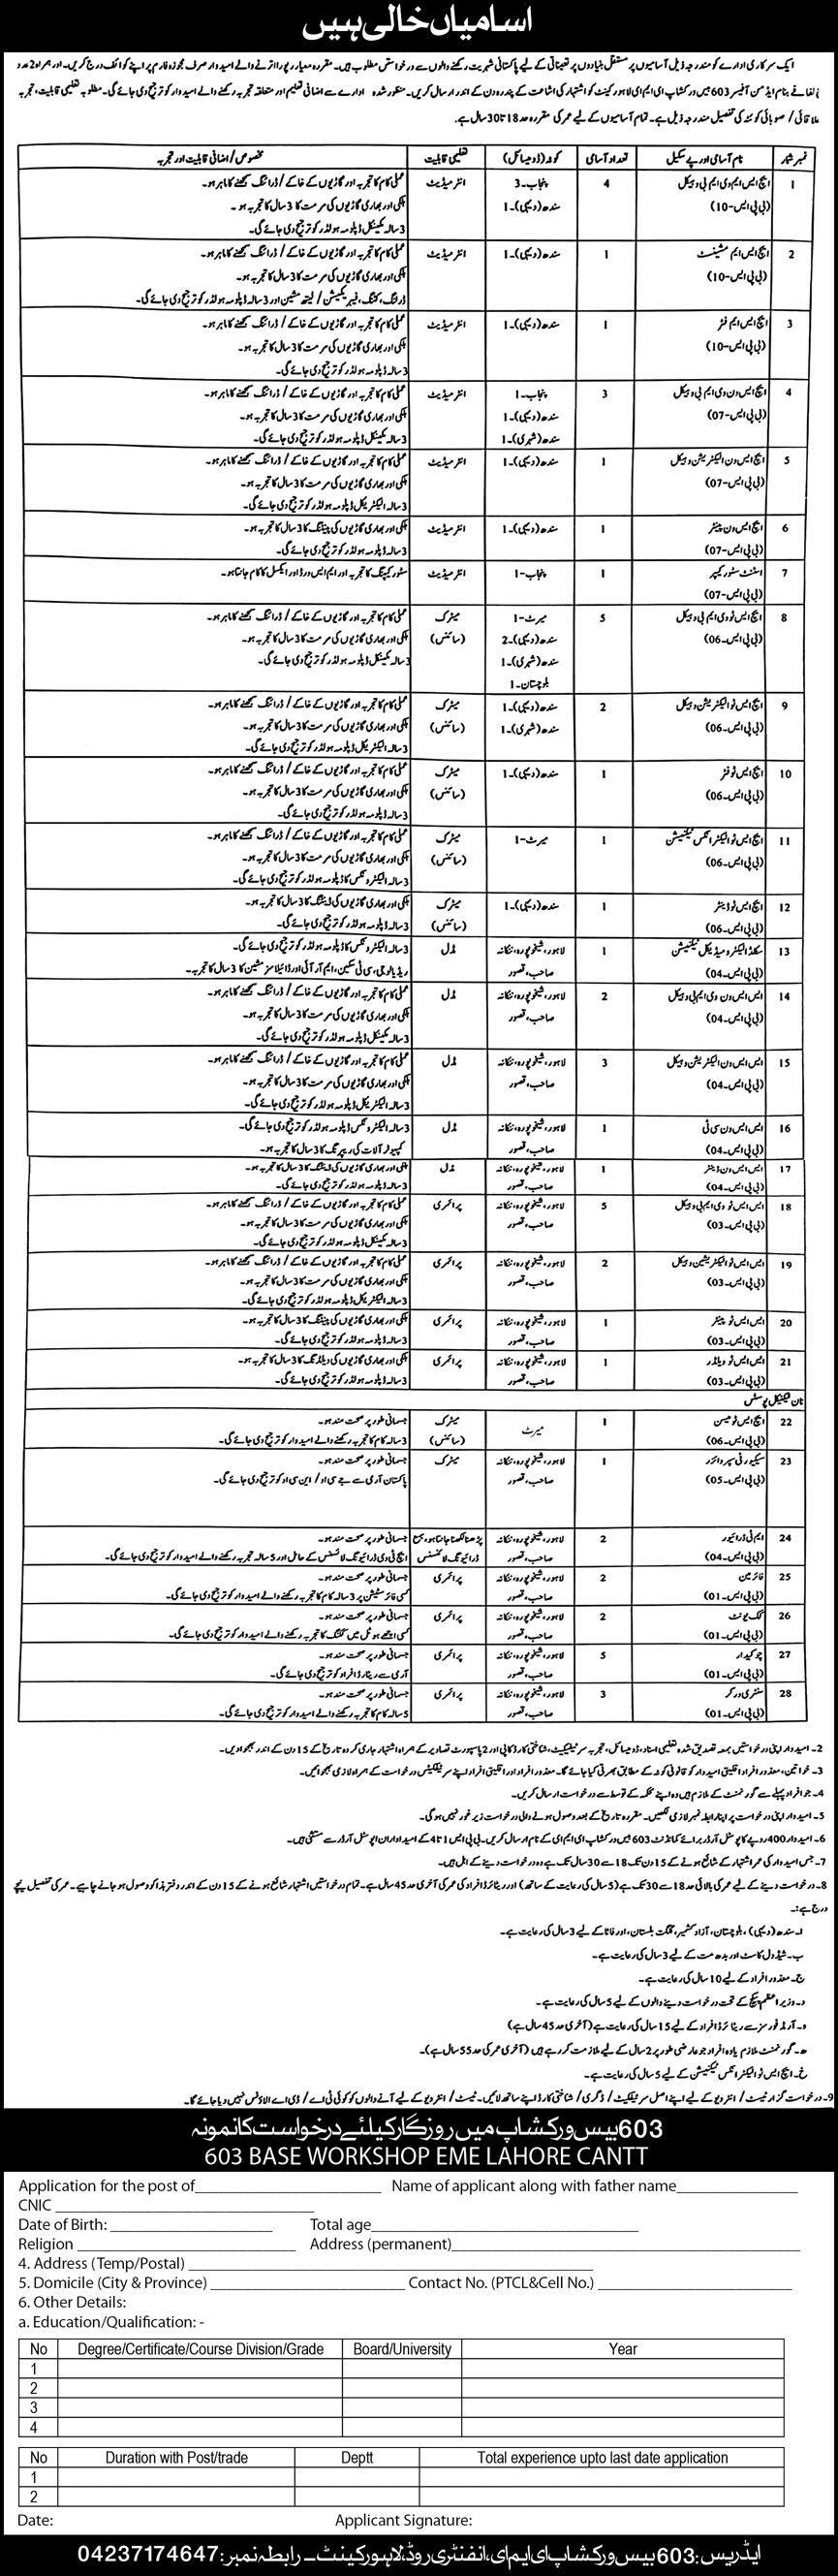 اسامیاں خالی ہیں
ایک سرکاری ادارے کو مندرجہ ذیل آسامیوں پر مستقل بنیادوں پر تعیناتی کے لیے پاکستانی شہریت رکھنے والوں سے درخواستیں مطلوب ہیں۔ مقررہ معیار پر پورا اترنے والے امیدوار صرف مجوزہ فارم پر اپنے کوائف درج کریں۔ اور ہمراہ 2 عدد
لفافے بنام ایڈمن آفیسر 603 بیس ورکشاپ ای ایم ای لاہور کینٹ کو اشتہار کی اشاعت کے پندرہ دن کے اندر ارسال کریں۔ منظور شدہ ادارے سے اضافی تعلیم اور متعلقہ تجربہ رکھنے والے امیدوار کو ترجیح دی جائے گی۔ مطلوبہ تعلیمی قابلیت، تجربہ
علاقائی / صوبائی کوٹہ کی تفصیل مندرجہ ذیل ہے۔ تمام آسامیوں کے لیے عمر کی مقررہ حد 18 تا 30 سال ہے۔
نمبر شمار نام آسامی اور پے سکیل تعداد آسامی کوٹہ (ڈومیسائل) تعلیمی قابلیت مخصوص / اضافی قابلیت اور تجربہ
1 ایچ ایس ایم وی ایم بی وہیکل 4 پنجاب۔3 انٹرمیڈیٹ عملی کام کا تجربہ اور گاڑیوں کے خاکے / ڈرائنگ سمجھنے کا ماہر ہو۔
(بی پی ایس-10) سندھ (دیہی)۔1 ہلکی اور بھاری گاڑیوں کی مرمت کا 3 سال کا تجربہ ہو۔
3 سالہ مکینکل ڈپلومہ ہولڈر کو ترجیح دی جائے گی۔
2 ایچ ایس ایم مشینسٹ 1 سندھ (دیہی)۔1 انٹرمیڈیٹ عملی کام کا تجربہ اور گاڑیوں کے خاکے / ڈرائنگ سمجھنے کا ماہر ہو۔
(بی پی ایس-10) ہلکی اور بھاری گاڑیوں کی مرمت کا 3 سال کا تجربہ ہو۔
ڈرلنگ، کٹنگ، فیبریکیشن / لیتھ مشین اور 3 سالہ ڈپلومہ ہولڈر کو ترجیح دی جائے گی۔
3 ایچ ایس ایم فٹر 1 سندھ (دیہی)۔1 انٹرمیڈیٹ عملی کام کا تجربہ اور گاڑیوں کے خاکے / ڈرائنگ سمجھنے کا ماہر ہو۔
(بی پی ایس-10) ہلکی اور بھاری گاڑیوں کی مرمت کا 3 سال کا تجربہ ہو۔
3 سالہ ڈپلومہ ہولڈر کو ترجیح دی جائے گی۔
4 ایچ ایس ون وی ایم بی وہیکل 3 پنجاب۔1 انٹرمیڈیٹ عملی کام کا تجربہ اور گاڑیوں کے خاکے / ڈرائنگ سمجھنے کا ماہر ہو۔
(بی پی ایس-07) سندھ (دیہی)۔1 ہلکی اور بھاری گاڑیوں کی مرمت کا 3 سال کا تجربہ ہو۔
سندھ (شہری)۔1 3 سالہ مکینکل ڈپلومہ ہولڈر کو ترجیح دی جائے گی۔
5 ایچ ایس ون الیکٹریشن وہیکل 1 سندھ (دیہی)۔1 انٹرمیڈیٹ عملی کام کا تجربہ اور گاڑیوں کے خاکے / ڈرائنگ سمجھنے کا ماہر ہو۔
(بی پی ایس-07) ہلکی اور بھاری گاڑیوں کی مرمت کا 3 سال کا تجربہ ہو۔
3 سالہ الیکٹریکل ڈپلومہ ہولڈر کو ترجیح دی جائے گی۔
6 ایچ ایس ون پینٹر 1 سندھ (دیہی)۔1 انٹرمیڈیٹ ہلکی اور بھاری گاڑیوں کی پینٹنگ کا 3 سال کا تجربہ ہو۔
(بی پی ایس-07) 3 سالہ ڈپلومہ ہولڈر کو ترجیح دی جائے گی۔
7 اسسٹنٹ سٹور کیپر 1 پنجاب-1 انٹرمیڈیٹ سٹور کیپنگ کا تجربہ اور ایم ایس ورڈ اور ایکسل کا کام جانتا ہو۔
(بی پی ایس-07)
8 ایچ ایس ٹو وی ایم بی وہیکل 5 میرٹ-1 میٹرک عملی کام کا تجربہ اور گاڑیوں کے خاکے / ڈرائنگ سمجھنے کا ماہر ہو۔
(بی پی ایس۔06) سندھ (دیہی)۔2 (سائنس) ہلکی اور بھاری گاڑیوں کی مرمت کا 3 سال کا تجربہ ہو۔
سندھ (شہری)۔1 3 سالہ مکینکل ڈپلومہ ہولڈر کو ترجیح دی جائے گی۔
بلوچستان۔1
9 ایچ ایس ٹو الیکٹریشن وہیکل 2 سندھ (دیہی)۔1 میٹرک عملی کام کا تجربہ اور گاڑیوں کے خاکے / ڈرائنگ سمجھنے کا ماہر ہو۔
(بی پی ایس۔06) سندھ (شہری)۔1 (سائنس) ہلکی اور بھاری گاڑیوں کی مرمت کا 3 سال کا تجربہ ہو۔
3 سالہ الیکٹریکل ڈپلومہ ہولڈر کو ترجیح دی جائے گی۔
10 ایچ ایس ٹو فٹر 1 سندھ (دیہی)۔1 میٹرک عملی کام کا تجربہ اور گاڑیوں کے خاکے / ڈرائنگ سمجھنے کا ماہر ہو۔
(بی پی ایس۔06) (سائنس) ہلکی اور بھاری گاڑیوں کی مرمت کا 3 سال کا تجربہ ہو۔
3 سالہ ڈپلومہ ہولڈر کو ترجیح دی جائے گی۔
11 ایچ ایس ٹو الیکٹرانکس ٹیکنیشن 1 میرٹ-1 میٹرک عملی کام کا تجربہ اور گاڑیوں کے خاکے / ڈرائنگ سمجھنے کا ماہر ہو۔
(بی پی ایس۔06) (سائنس) ہلکی اور بھاری گاڑیوں کی مرمت کا 3 سال کا تجربہ ہو۔
3 سالہ الیکٹرونکس کا ڈپلومہ ہولڈر کو ترجیح دی جائے گی۔
12 ایچ ایس ٹو ڈینٹر 1 سندھ (دیہی)۔1 میٹرک ہلکی اور بھاری گاڑیوں کی ڈینٹنگ کا 3 سال کا تجربہ ہو۔
(بی پی ایس۔06) (سائنس) 3 سالہ ڈپلومہ ہولڈر کو ترجیح دی جائے گی۔
13 سکلڈ الیکٹرو میڈیکل ٹیکنیشن 1 لاہور، شیخوپورہ، ننکانہ مڈل 3 سالہ الیکٹرونکس کا ڈپلومہ ہولڈر کو ترجیح دی جائے گی۔
(بی پی ایس۔04) صاحب، قصور ریڈیالوجی، سی ٹی سکین، ایم آر آئی اور ڈائیلائسز مشین کا 3 سال کا تجربہ۔
14 ایس ایس ون وی ایم بی وہیکل 2 لاہور، شیخوپورہ، ننکانہ مڈل عملی کام کا تجربہ اور گاڑیوں کے خاکے / ڈرائنگ سمجھنے کا ماہر ہو۔
(بی پی ایس۔04) صاحب، قصور ہلکی اور بھاری گاڑیوں کی مرمت کا 3 سال کا تجربہ ہو۔
3 سالہ مکینکل ڈپلومہ ہولڈر کو ترجیح دی جائے گی۔
15 ایس ایس ون الیکٹریشن وہیکل 3 لاہور، شیخوپورہ، ننکانہ مڈل عملی کام کا تجربہ اور گاڑیوں کے خاکے / ڈرائنگ سمجھنے کا ماہر ہو۔
(بی پی ایس۔04) صاحب، قصور ہلکی اور بھاری گاڑیوں کی مرمت کا 3 سال کا تجربہ ہو۔
3 سالہ الیکٹریکل ڈپلومہ ہولڈر کو ترجیح دی جائے گی۔
16 ایس ایس ون سی ٹی 1 لاہور، شیخوپورہ، ننکانہ مڈل 3 سالہ الیکٹرونکس ڈپلومہ ہولڈر کو ترجیح دی جائے گی۔
(بی پی ایس۔04) صاحب، قصور کمپیوٹر آلات کی ریپرنگ کا 3 سال کا تجربہ ہو۔
17 ایس ایس ون ڈینٹر 1 لاہور، شیخوپورہ، ننکانہ مڈل ہلکی اور بھاری گاڑیوں کی ڈینٹنگ کا 3 سال کا تجربہ ہو۔
(بی پی ایس۔04) صاحب، قصور 3 سالہ ڈپلومہ ہولڈر کو ترجیح دی جائے گی۔
18 ایس ایس ٹو وی ایم بی وہیکل 5 لاہور، شیخوپورہ، ننکانہ پرائمری عملی کام کا تجربہ اور گاڑیوں کے خاکے / ڈرائنگ سمجھنے کا ماہر ہو۔
(بی پی ایس۔03) صاحب، قصور ہلکی اور بھاری گاڑیوں کی مرمت کا 3 سال کا تجربہ ہو۔
3 سالہ مکینکل ڈپلومہ ہولڈر کو ترجیح دی جائے گی۔
19 ایس ایس ٹو الیکٹریشن وہیکل 2 لاہور، شیخوپورہ، ننکانہ پرائمری عملی کام کا تجربہ اور گاڑیوں کے خاکے / ڈرائنگ سمجھنے کا ماہر ہو۔
(بی پی ایس۔03) صاحب، قصور ہلکی اور بھاری گاڑیوں کی مرمت کا 3 سال کا تجربہ ہو۔
3 سالہ الیکٹریکل ڈپلومہ ہولڈر کو ترجیح دی جائے گی۔
20 ایس ایس ٹو پینٹر 1 لاہور، شیخوپورہ، ننکانہ پرائمری ہلکی اور بھاری گاڑیوں کی پینٹنگ کا 3 سال کا تجربہ ہو۔
(بی پی ایس۔03) صاحب، قصور 3 سالہ ڈپلومہ ہولڈر کو ترجیح دی جائے گی۔
21 ایس ایس ٹو ویلڈر 1 لاہور، شیخوپورہ، ننکانہ پرائمری ہلکی اور بھاری گاڑیوں کی ویلڈنگ کا 3 سال کا تجربہ ہو۔
(بی پی ایس۔03) صاحب، قصور 3 سالہ ڈپلومہ ہولڈر کو ترجیح دی جائے گی۔
نان ٹیکنیکل پوسٹس
22 ایچ ایس ٹو میسن 1 میرٹ میٹرک جسمانی طور پر صحت مند ہو۔
(بی پی ایس۔06) (سائنس) 3 سالہ کام کا تجربہ رکھنے والے امیدوار کو ترجیح دی جائے گی۔
23 سیکیورٹی سپروائزر 1 لاہور، شیخوپورہ، ننکانہ میٹرک جسمانی طور پر صحت مند ہو۔
(بی پی ایس۔05) صاحب، قصور پاکستان آرمی سے جے سی او / این سی او کو ترجیح دی جائے گی۔
24 ایم ٹی ڈرائیور 2 لاہور، شیخوپورہ، ننکانہ پڑھنا لکھنا جانتا ہو، بمع جسمانی طور پر صحت مند ہو۔
(بی پی ایس۔04) صاحب، قصور ڈرائیونگ لائسنس ایچ ٹی وی ڈرائیونگ لائسنس کے حامل اور 5 سالہ تجربہ رکھنے والے امیدوار کو ترجیح دی جائے گی۔
25 فائرمین 2 لاہور، شیخوپورہ، ننکانہ پرائمری جسمانی طور پر صحت مند ہو۔
(بی پی ایس۔01) صاحب، قصور کسی فائر سٹیشن پر 3 سالہ کام کا تجربہ رکھنے والے امیدوار کو ترجیح دی جائے گی۔
26 کک یونٹ 2 لاہور، شیخوپورہ، ننکانہ پرائمری جسمانی طور پر صحت مند ہو۔
(بی پی ایس۔01) صاحب، قصور کسی اچھے ہوٹل میں ککنگ کا تجربہ رکھنے والے امیدوار کو ترجیح دی جائے گی۔
27 چوکیدار 5 لاہور، شیخوپورہ، ننکانہ پرائمری جسمانی طور پر صحت مند ہو۔
(بی پی ایس۔01) صاحب، قصور آرمی سے ریٹائرڈ افراد کو ترجیح دی جائے گی۔
28 سنٹری ورکر 3 لاہور، شیخوپورہ، ننکانہ پرائمری جسمانی طور پر صحت مند ہو۔
(بی پی ایس۔01) صاحب، قصور 5 سالہ کام کا تجربہ رکھنے والے امیدوار کو ترجیح دی جائے گی۔
2۔ امیدوار اپنی درخواستیں بمعہ تصدیق شدہ تعلیمی اسناد، ڈومیسائل، تجربہ سرٹیفکیٹ، شناختی کارڈ کاپی اور 2 پاسپورٹ تصاویر کے ہمراہ اشتہار جاری کردہ تاریخ کے 15 دن کے اندر بھجوا دیں۔
3۔ خواتین، معذور افراد اقلیتی امیدوار کو قانونی کوٹہ کے مطابق بھرتی کیا جائے گا۔ معذور افراد اور اقلیتی افراد اپنے سرٹیفکیٹس درخواست کے ہمراہ لازمی بھجوائیں۔
4۔ جو افراد پہلے سے گورنمنٹ کے ملازم ہیں وہ اپنے محکمہ کے توسط سے درخواست ارسال کریں۔
5۔ امیدوار اپنی درخواست پر اپنا رابطہ نمبر لازمی لکھیں۔ مقررہ تاریخ کے بعد وصول ہونے والی درخواست زیر غور نہیں ہوگی۔
6۔ امیدوار 400 روپے کا پوسٹل آرڈر برائے کمانڈنٹ 603 بیس ورکشاپ ای ایم ای کے نام ارسال کریں۔ بی پی ایس 1 تا 4 کے امیدواران پوسٹل آرڈر سے مستثنیٰ ہیں۔
7۔ جس امیدوار کی عمر اشتہار کے شائع ہونے کے 15 دن تک 18 سے 30 سال تک ہے وہ درخواست دینے کے اہل ہیں۔
8۔ درخواست دینے کے لیے عمر کی بالائی حد 18 سے 30 تک ہے (5 سال کی رعایت کے ساتھ) اور ریٹائرڈ افراد کی عمر کی آخری حد 45 سال ہے۔ تمام درخواستیں اشتہار شائع ہونے کے 15 دن کے اندر دفتر ہذا کو وصول ہو جانے چاہیے۔ عمر کی تفصیل نیچے
درج ہے:۔
ا۔ سندھ (دیہی)، بلوچستان، آزاد کشمیر، گلگت بلتستان، اور فاٹا کے لیے 3 سال کی رعایت ہے۔
ب۔ شیڈول کاسٹ اور بدھ مت کے لیے 3 سال کی رعایت ہے۔
ج۔ معذور افراد کے لیے 10 سال کی رعایت ہے۔
د۔ وزیر اعظم پیکج کے تحت درخواست دینے والوں کے لیے 5 سال کی رعایت ہے۔
و۔ آرمڈ فورسز سے ریٹائرڈ افراد کے لیے 15 سال کی رعایت ہے (آخری حد 45 سال ہے)
ھ۔ گورنمنٹ ملازم یا وہ افراد جو عارضی طور پر 2 سال کے لیے ملازمت کر رہے ہیں (آخری عمر کی حد 55 سال ہے)۔
خ۔ ایچ ایس ٹو الیکٹرانکس ٹیکنیشن کے لیے 5 سال کی رعایت ہے۔
9۔ درخواست گزار ٹیسٹ / انٹرویو کے لیے اپنے اصل سرٹیفکیٹ / ڈگری / شناختی کارڈ اپنے ساتھ لائیں۔ ٹیسٹ / انٹرویو کے لیے آنے والوں کو کوئی ٹی اے / ڈی اے الاؤنس نہیں دیا جائے گا۔
603 بیس ورکشاپ میں روزگار کیلئے درخواست کا نمونہ
603 BASE WORKSHOP EME LAHORE CANTT
Application for the post of Name of applicant along with father name
CNIC
Date of Birth: Total age
Religion Address (permanent)
4. Address (Temp/Postal)
5. Domicile (City & Province) Contact No. (PTCL&Cell No.)
6. Other Details:
a. Education/Qualification: -
No Degree/Certificate/Course Division/Grade Board/University Year
1
2
3
4
No Duration with Post/trade Deptt Total experience upto last date application
1
2
Date: Applicant Signature:
ایڈریس: 603 بیس ورکشاپ ای ایم ای، انفنٹری روڈ، لاہور کینٹ ۔ رابطہ نمبر: 04237174647